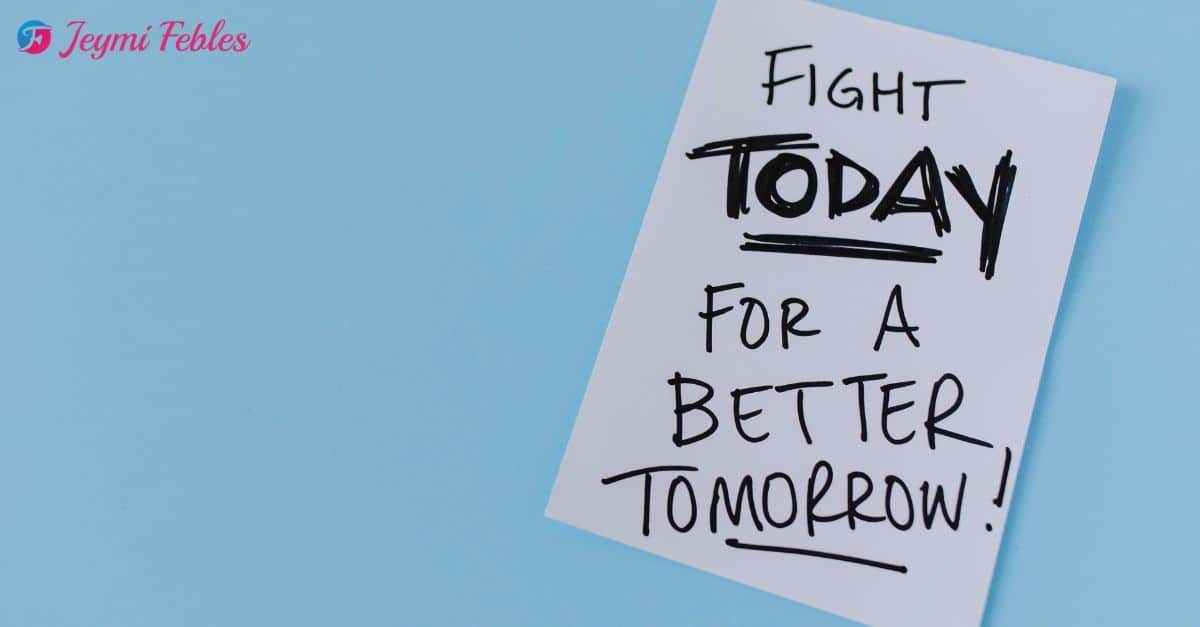 Jeymi Febles
FIGHT
TODAY
FOR A
BETTER
TOMORROW!